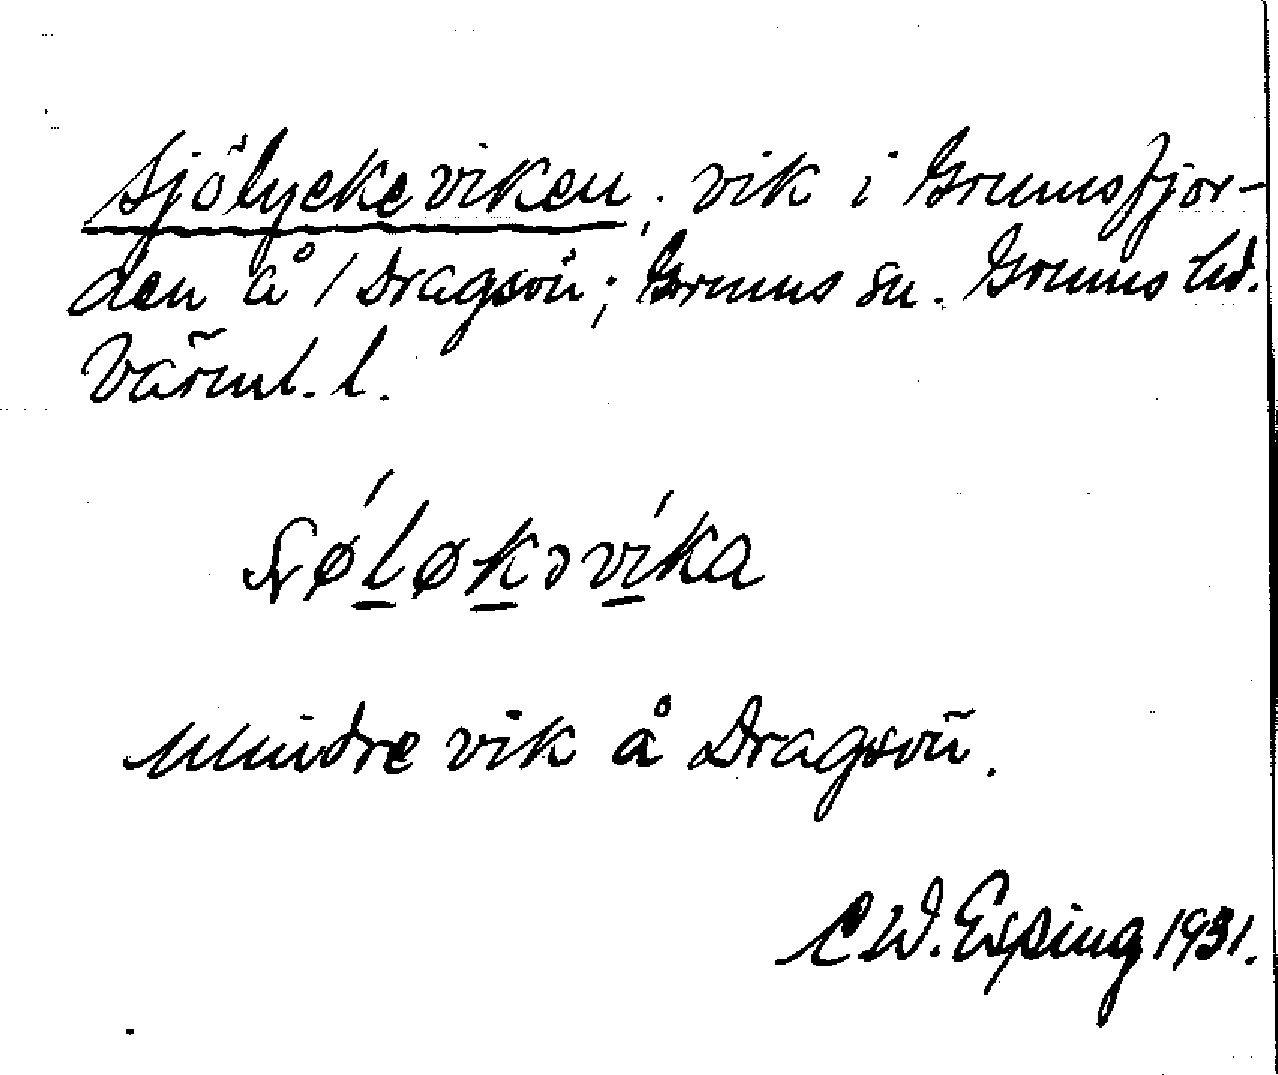 Sjölyckeviken; vik i Grumsfjor-
den å / Dragsön; Grums sn. Grums hd.
Värml. l.
øĺøkəv́ika
Mindre vik å Dragsön.
C W. Esping 1931.